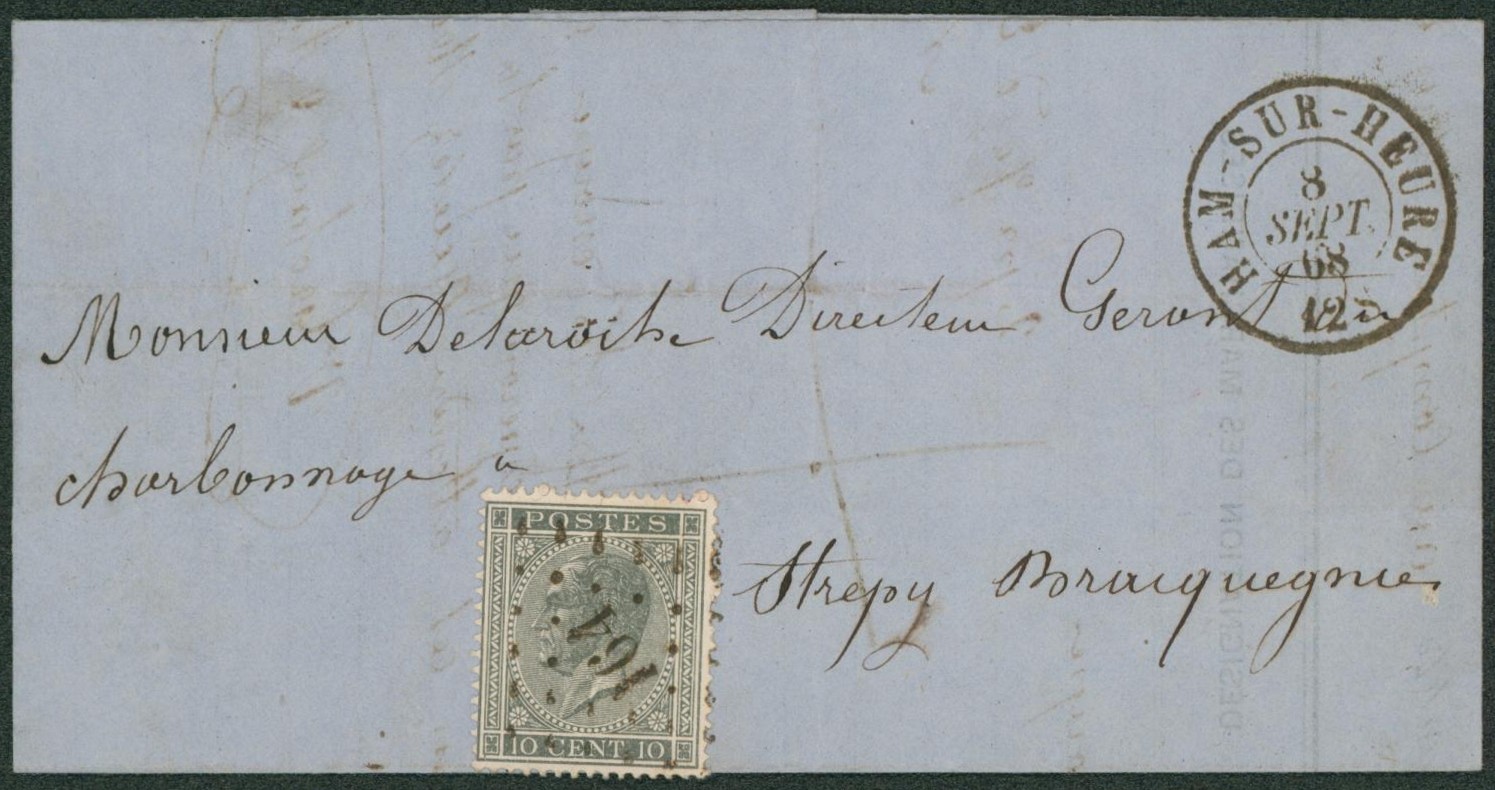 HAM-SUR-HEURE
8
SEPT.
68
12
Monsieur Delaroche Directeur Gerant du
charbonnage a
Strepy Bracquegnies
POSTES
164
10 CENT 10
DESIGNATION DES MAR